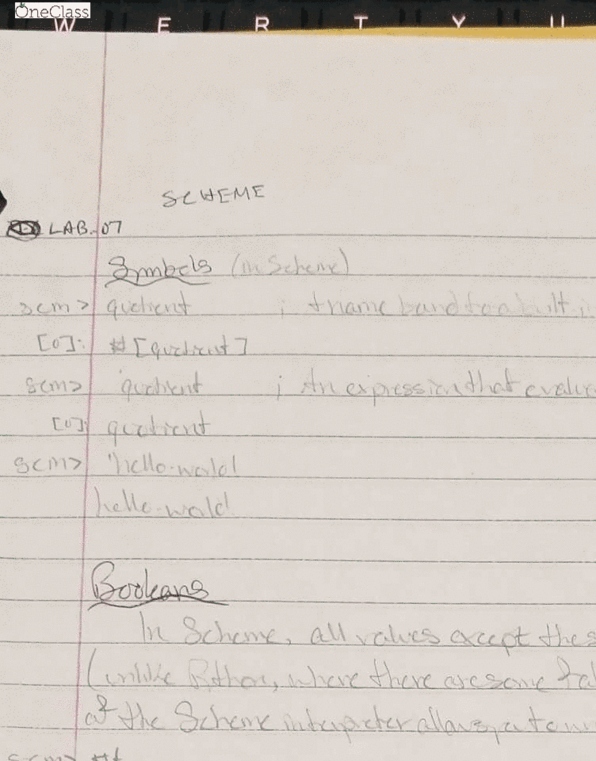 OneClass
W E R T Y U
SCHEME
LAB.07
Symbols (in Scheme)
scm> quotient ; A name bound to a built i
[0]: #[quotient]
scm> 'quotient ; An expression that evalu
[0]: quotient
scm> 'hello-world!
hello-world!
Booleans
In Scheme, all values except the s
(unlike Python, where there are some fal
of the Scheme interpreter allows
scm> #t